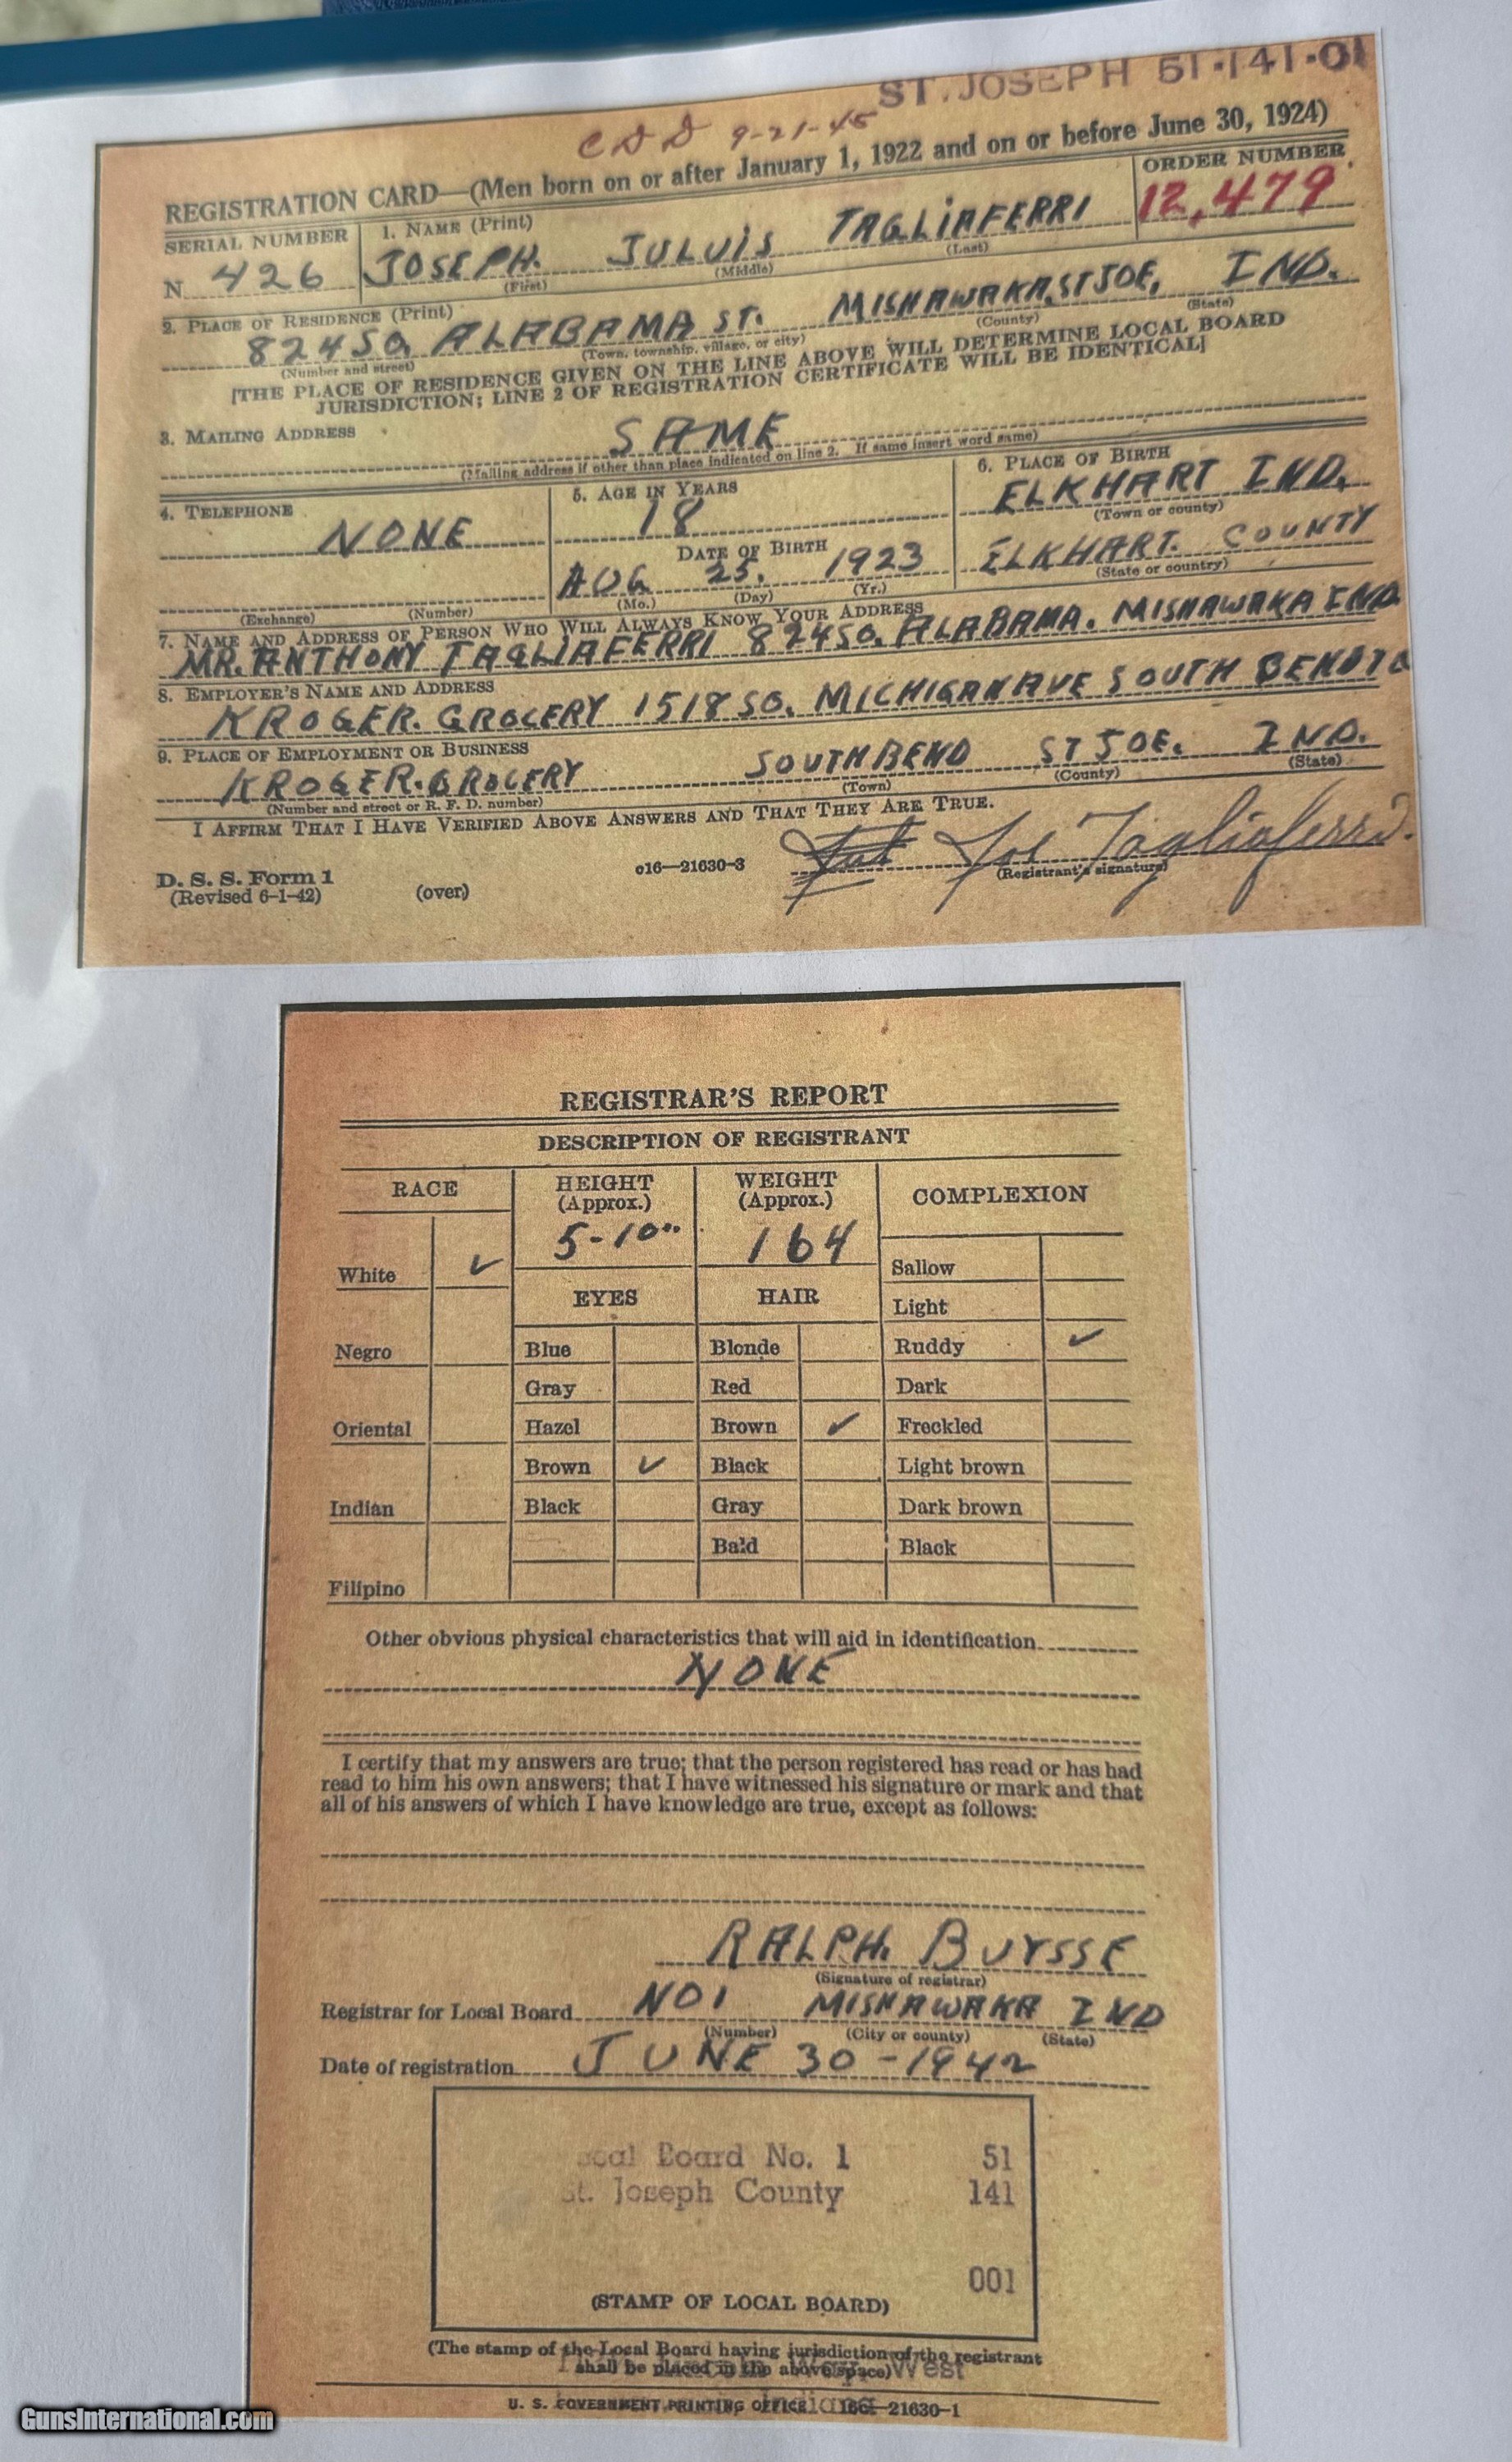 ST. JOSEPH 51-141-01
CDD 9-21-45
REGISTRATION CARD—(Men born on or after January 1, 1922 and on or before June 30, 1924)
SERIAL NUMBER
1. NAME (Print)
ORDER NUMBER
N 426
JOSEPH. JULUIS TAGLIAFERRI
12,479
(First) (Middle) (Last)
2. PLACE OF RESIDENCE (Print)
824 SO. ALABAMA ST. MISHAWAKA, ST JOE, IND.
(Number and street) (Town, township, village, or city) (County) (State)
[THE PLACE OF RESIDENCE GIVEN ON THE LINE ABOVE WILL DETERMINE LOCAL BOARD
JURISDICTION; LINE 2 OF REGISTRATION CERTIFICATE WILL BE IDENTICAL]
3. MAILING ADDRESS
SAME
(Mailing address if other than place indicated on line 2. If same insert word same)
4. TELEPHONE
NONE
(Exchange) (Number)
5. AGE IN YEARS
18
DATE OF BIRTH
AUG 25, 1923
(Mo.) (Day) (Yr.)
6. PLACE OF BIRTH
ELKHART IND.
(Town or county)
ELKHART. COUNTY
(State or country)
7. NAME AND ADDRESS OF PERSON WHO WILL ALWAYS KNOW YOUR ADDRESS
MR. ANTHONY TAGLIAFERRI 824 SO. ALABAMA. MISHAWAKA IND
8. EMPLOYER'S NAME AND ADDRESS
KROGER. GROCERY 1518 SO. MICHIGAN AVE SOUTH BEND
9. PLACE OF EMPLOYMENT OR BUSINESS
KROGER. GROCERY SOUTH BEND ST JOE. IND.
(Number and street or R. F. D. number) (Town) (County) (State)
I AFFIRM THAT I HAVE VERIFIED ABOVE ANSWERS AND THAT THEY ARE TRUE.
Joe Tagliaferri.
(Registrant's signature)
D. S. S. Form 1
(Revised 6-1-42) (over) c16—21630-3
REGISTRAR'S REPORT
DESCRIPTION OF REGISTRANT
RACE
HEIGHT
(Approx.)
WEIGHT
(Approx.)
COMPLEXION
5-10" 164
White ✓
Negro
Oriental
Indian
Filipino
EYES
Blue
Gray
Hazel
Brown ✓
Black
HAIR
Blonde
Red
Brown ✓
Black
Gray
Bald
Sallow
Light
Ruddy ✓
Dark
Freckled
Light brown
Dark brown
Black
Other obvious physical characteristics that will aid in identification
NONE
I certify that my answers are true; that the person registered has read or has had
read to him his own answers; that I have witnessed his signature or mark and that
all of his answers of which I have knowledge are true, except as follows:
RALPH. BUYSSE
(Signature of registrar)
Registrar for Local Board NO 1 MISHAWAKA IND
(Number) (City or county) (State)
Date of registration JUNE 30-1942
Local Board No. 1 51
St. Joseph County 141
001
(STAMP OF LOCAL BOARD)
(The stamp of the Local Board having jurisdiction of the registrant
shall be placed in the above space)
West
U. S. GOVERNMENT PRINTING OFFICE 16—21630-1
GunsInternational.com